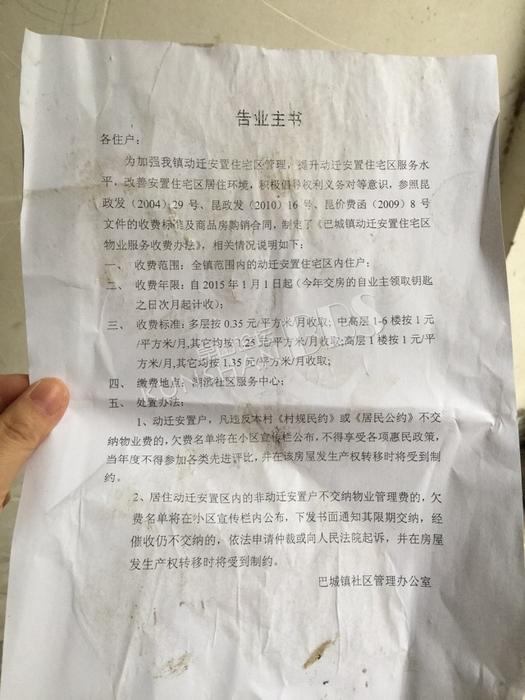 告业主书
各住户：
为加强我镇动迁安置住宅区管理，提升动迁安置住宅区服务水
平，改善安置住宅区居住环境，积极倡导权利义务对等意识，参照昆
政发（2004）29 号、昆政发（2010）16 号、昆价费函（2009）8 号
文件的收费标准及商品房购销合同，制定了《巴城镇动迁安置住宅区
物业服务收费办法》，相关情况说明如下：
一、 收费范围：全镇范围内的动迁安置住宅区内住户；
二、 收费年限：自 2015 年 1 月 1 日起（今年交房的自业主领取钥匙
之日次月起计收）；
三、 收费标准：多层按 0.35 元/平方米/月收取；中高层 1-6 楼按 1 元
/平方米/月,其它均按 1.25 元/平方米/月收取;高层 1 楼按 1 元/平
方米/月,其它均按 1.35 元/平方米/月收取;
四、 缴费地点：湖滨社区服务中心；
五、 处置办法：
1、动迁安置户，凡违反本村《村规民约》或《居民公约》不交
纳物业费的，欠费名单将在小区宣传栏公布，不得享受各项惠民政策，
当年度不得参加各类先进评比，并在该房屋发生产权转移时将受到制
约。
2、居住动迁安置区内的非动迁安置户不交纳物业管理费的，欠
费名单将在小区宣传栏内公布，下发书面通知其限期交纳，经
催收仍不交纳的，依法申请仲裁或向人民法院起诉，并在房屋
发生产权转移时将受到制约。
巴城镇社区管理办公室